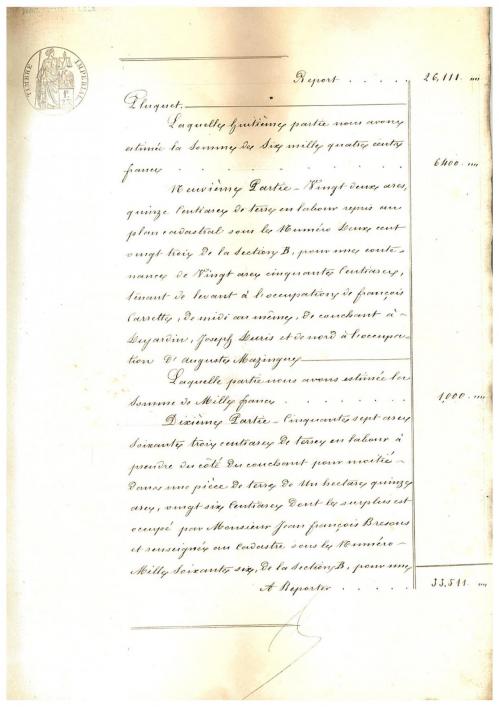 TIMBRE IMPERIAL
Report . . . . . 26,111. "
Pluquet.
Laquelle huitième partie nous avons
estimée la somme de Six mille quatre cents
francs . . . . . . . . . . 6400. "
Neuvième Partie – Vingt deux ares,
quinze Centiares de terre en labour repris au
plan cadastral sous le Numéro Deux cent
vingt trois de la Section B, pour une conte-
nance de Vingt ares cinquante Centiares,
tenant de levant à l'occupation de françois
Carrette, de midi au même, de couchant à
Dujardin, Joseph Duris et de nord à l'occupa-
tion d'Auguste Mazingue
Laquelle partie nous avons estimée la
Somme de Mille francs . . . . . 1,000. "
Dixième Partie – Cinquante sept ares
Soixante trois centiares de terre en labour à
prendre du côté du couchant pour moitié
dans une pièce de terre de Un hectare quinze
ares, vingt six Centiares dont le surplus est
occupé par Monsieur Jean françois Bresous
et renseignée au Cadastre sous le Numéro
Mille Soixante six, de la Section B, pour une
A Reporter . . . . . 33,511. "